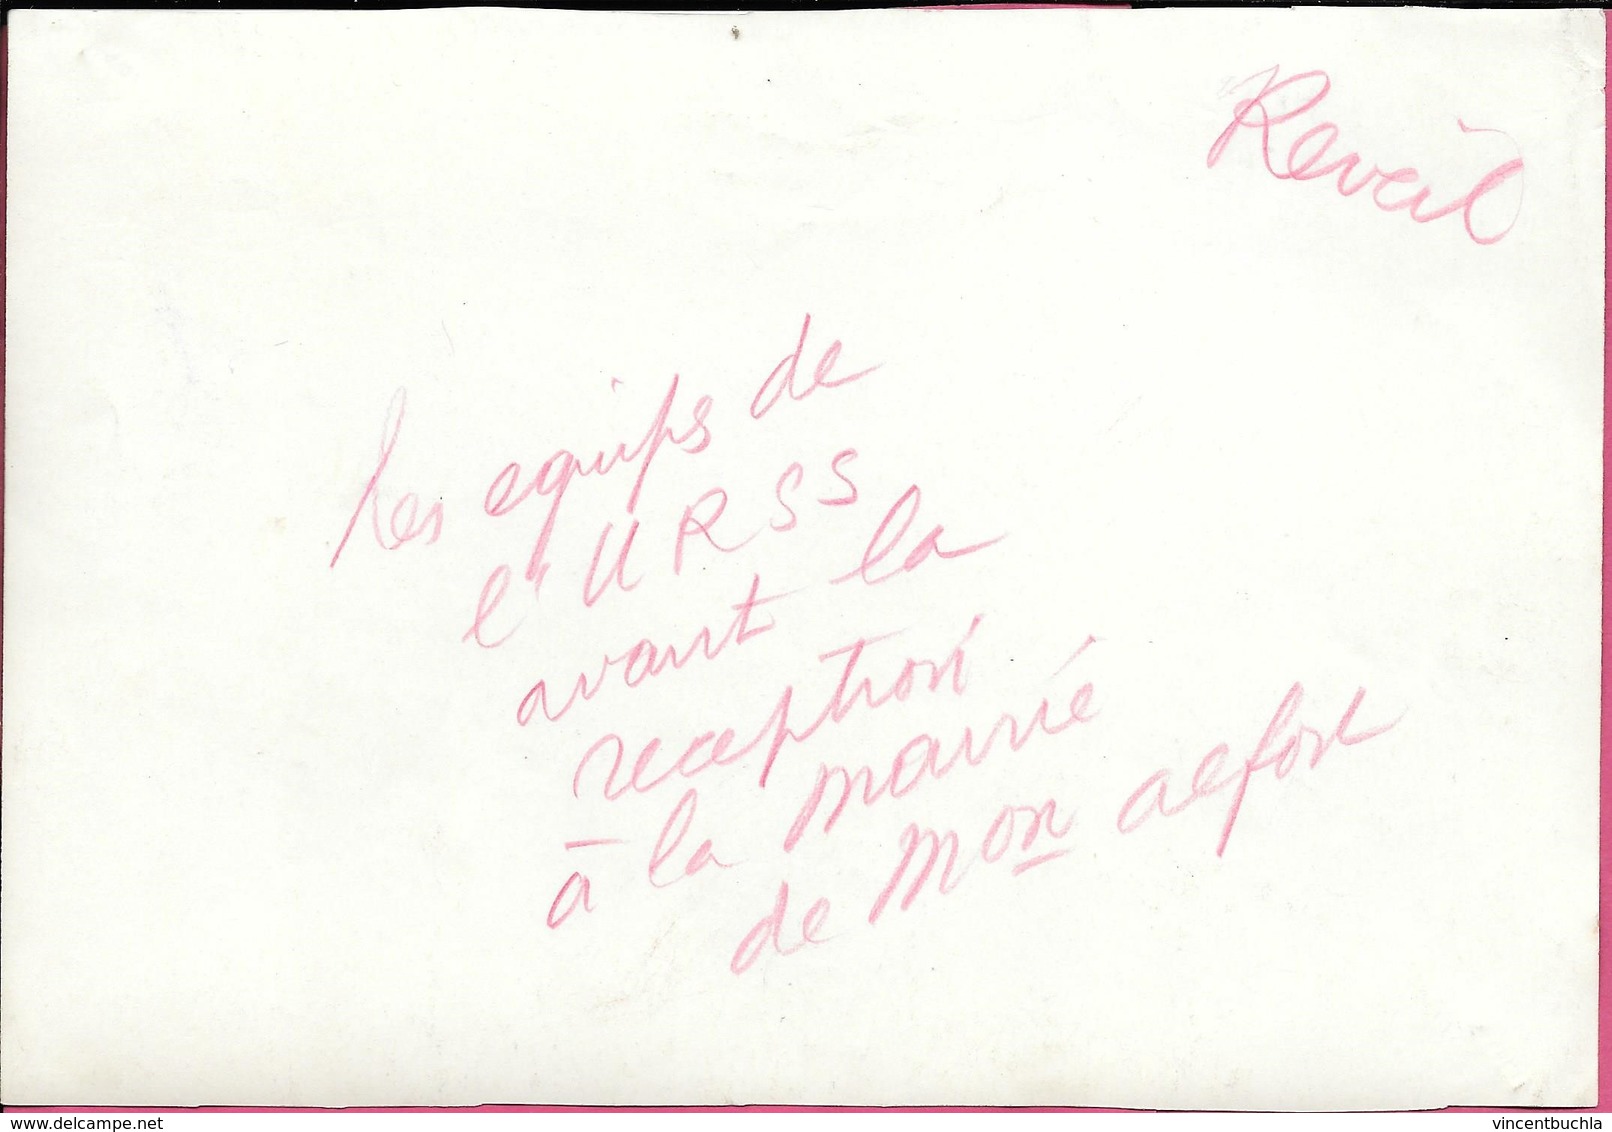 Reveil
Les equips de
l'URSS
avant la
reception
à la mairie
de Mon alfort
delcampe.net
vincentbuchla